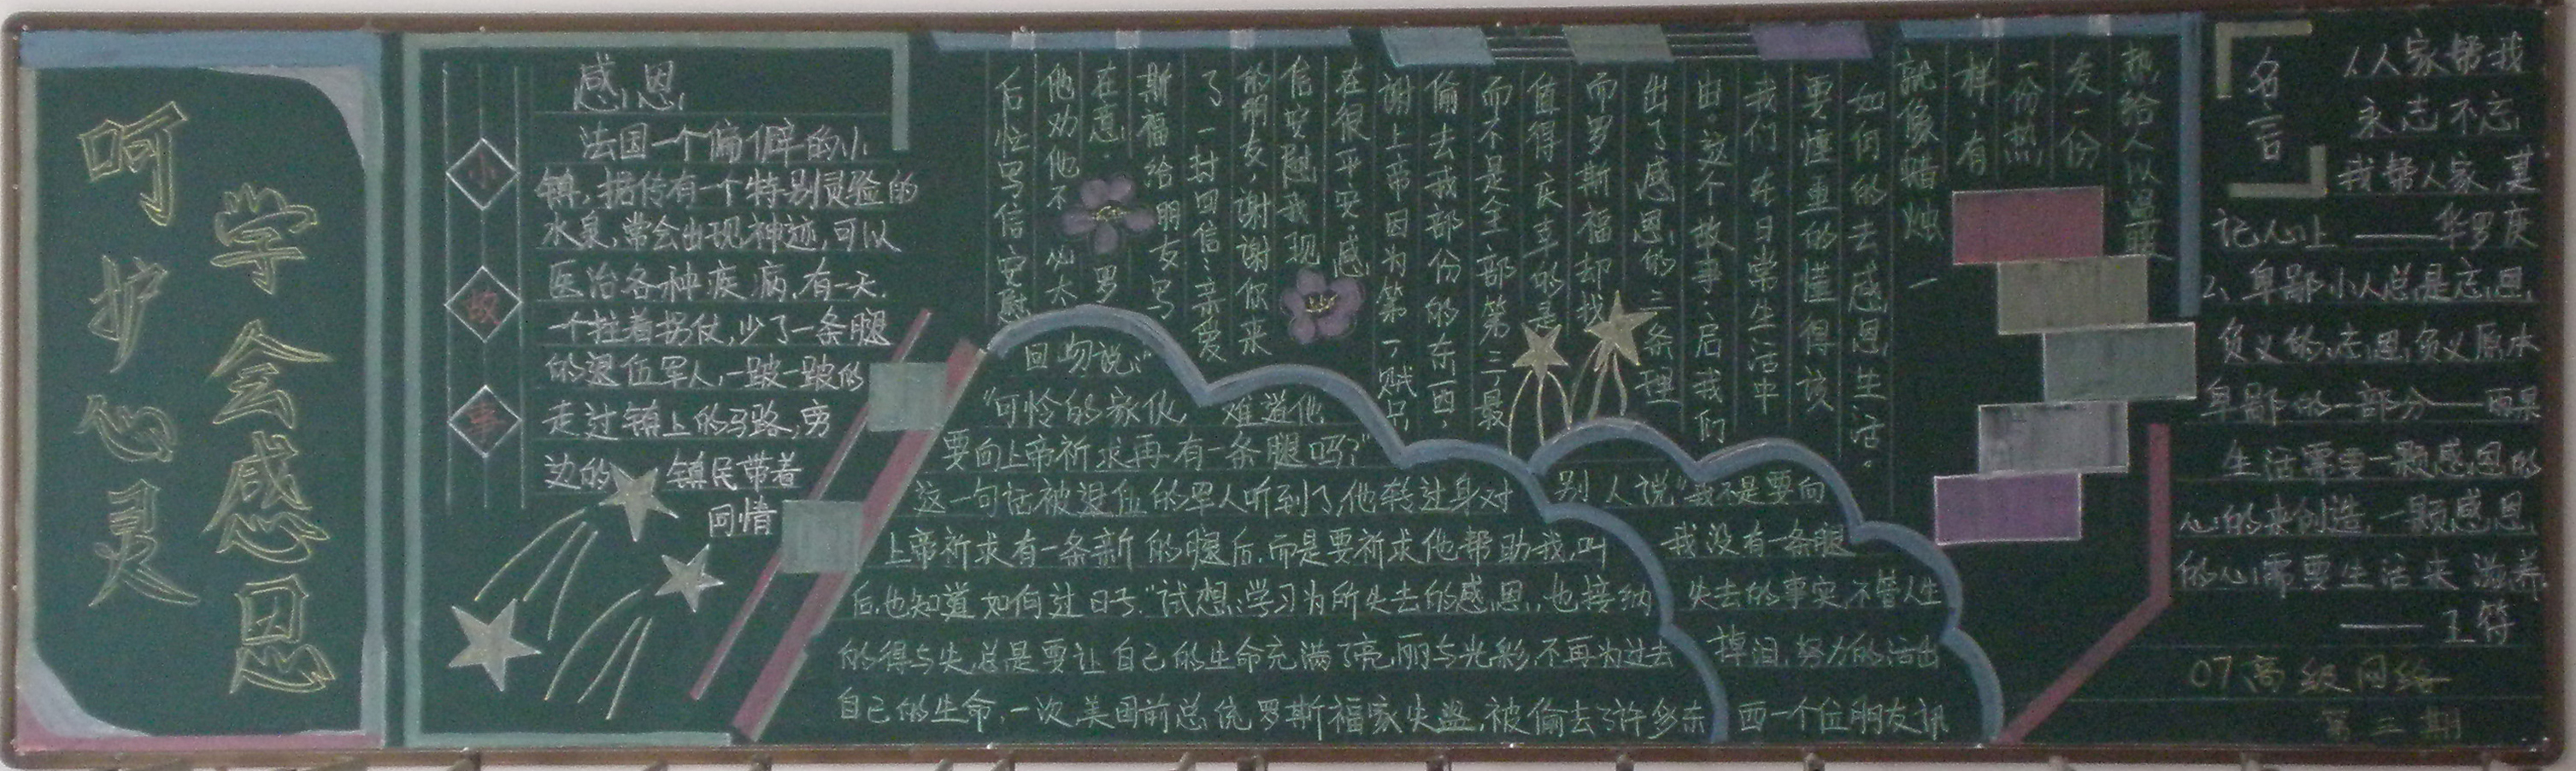 呵护心灵
学会感恩
小故事
感恩
法国一个偏僻的小
镇,据传有一个特别灵验的
水泉,常会出现神迹,可以
医治各种疾病,有一天,
一个拄着拐仗,少了一条腿
的退伍军人,一跛一跛的
走过镇上的马路,旁
边的 镇民带着
同情
回吻说:“
“可怜的家伙, 难道他
要向上帝祈求再有一条腿吗?”
这一句话被退伍的军人听到了,他转过身对 别人说“我不是要向
上帝祈求有一条新的腿后,而是要祈求他帮助我,叫 我没有一条腿
后,也知道如何过日子.”试想:学习为所失去的感恩,也接纳 失去的事实,不管人生
的得与失,总是要让自己的生命充满了亮丽与光彩,不再为过去 掉泪,努力的活出
自己的生命,一次,美国前总统罗斯福家失盗,被偷去了许多东 西一个位朋友讯
后忙写信安慰
他劝他不必太
在意.罗
斯福给朋友写
了一封回信:亲爱
的朋友,谢谢你来
信安慰我,现
在很平安.感
谢上帝因为第一,贼只
偷去我部份的东西,
而不是全部第三,最
值得庆幸的是
而罗斯福却找
出了感恩的三条理
由.这个故事:启我们
我们在日常生活中
要慬重的懂得该
如何的去感恩生活。
就像蜡烛一
样,有
一份热
发一份
热给人以温暖
名言
1、人家帮我
永志不忘
我帮人家,莫
记心上 ——华罗庚
2、卑鄙小人总是忘恩
负义的,忘恩负义原本
卑鄙的一部分——雨果
生活需要一颗感恩的
心的来创造,一颗感恩
的心需要生活来滋养
—— 王符
07高级网络
第三期